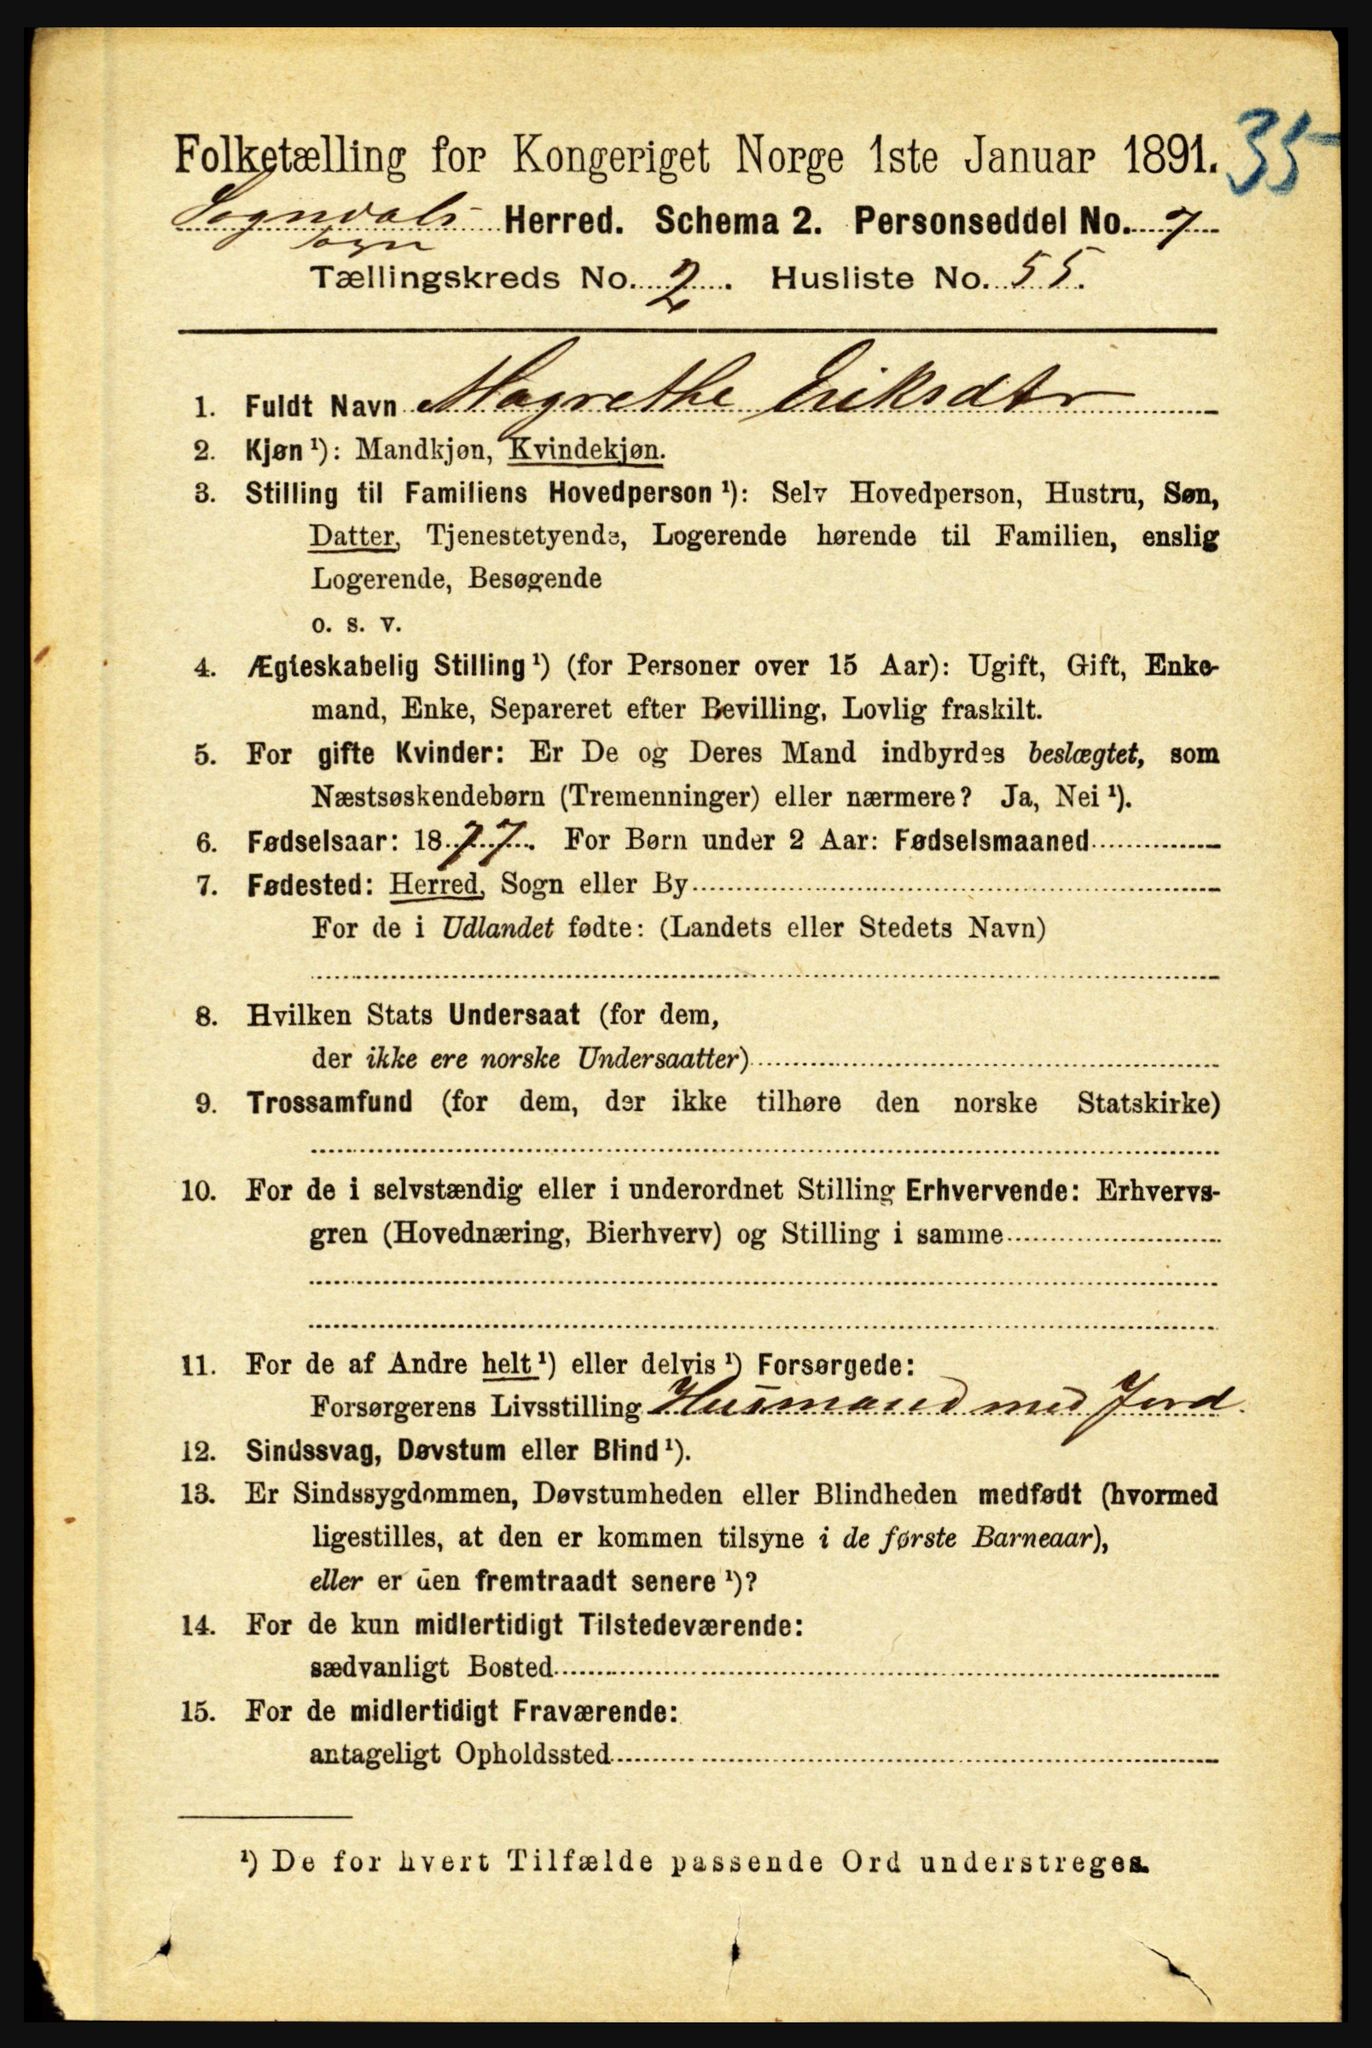 35
Folketælling for Kongeriget Norge 1ste Januar 1891.
Sogndals Herred. Schema 2. Personseddel No. 7
Sogn
Tællingskreds No. 2. Husliste No. 55.
1. Fuldt Navn Magrethe Eriksdtr
2. Kjøn¹): Mandkjøn, Kvindekjøn.
3. Stilling til Familiens Hovedperson¹): Selv Hovedperson, Hustru, Søn,
Datter, Tjenestetyende, Logerende hørende til Familien, enslig
Logerende, Besøgende
o. s. v.
4. Ægteskabelig Stilling¹) (for Personer over 15 Aar): Ugift, Gift, Enke-
mand, Enke, Separeret efter Bevilling, Lovlig fraskilt.
5. For gifte Kvinder: Er De og Deres Mand indbyrdes beslægtet, som
Næstsøskendebørn (Tremenninger) eller nærmere? Ja, Nei¹).
6. Fødselsaar: 1877. For Børn under 2 Aar: Fødselsmaaned
7. Fødested: Herred, Sogn eller By
For de i Udlandet fødte: (Landets eller Stedets Navn)
8. Hvilken Stats Undersaat (for dem,
der ikke ere norske Undersaatter)
9. Trossamfund (for dem, der ikke tilhøre den norske Statskirke)
10. For de i selvstændig eller i underordnet Stilling Erhvervende: Erhvervs-
gren (Hovednæring, Bierhverv) og Stilling i samme
11. For de af Andre helt¹) eller delvis¹) Forsørgede:
Forsørgerens Livsstilling Husmand med Jord.
12. Sindssvag, Døvstum eller Blind¹).
13. Er Sindssygdommen, Døvstumheden eller Blindheden medfødt (hvormed
ligestilles, at den er kommen tilsyne i de første Barneaar),
eller er den fremtraadt senere¹)?
14. For de kun midlertidigt Tilstedeværende:
sædvanligt Bosted
15. For de midlertidigt Fraværende:
antageligt Opholdssted
¹) De for hvert Tilfælde passende Ord understreges.